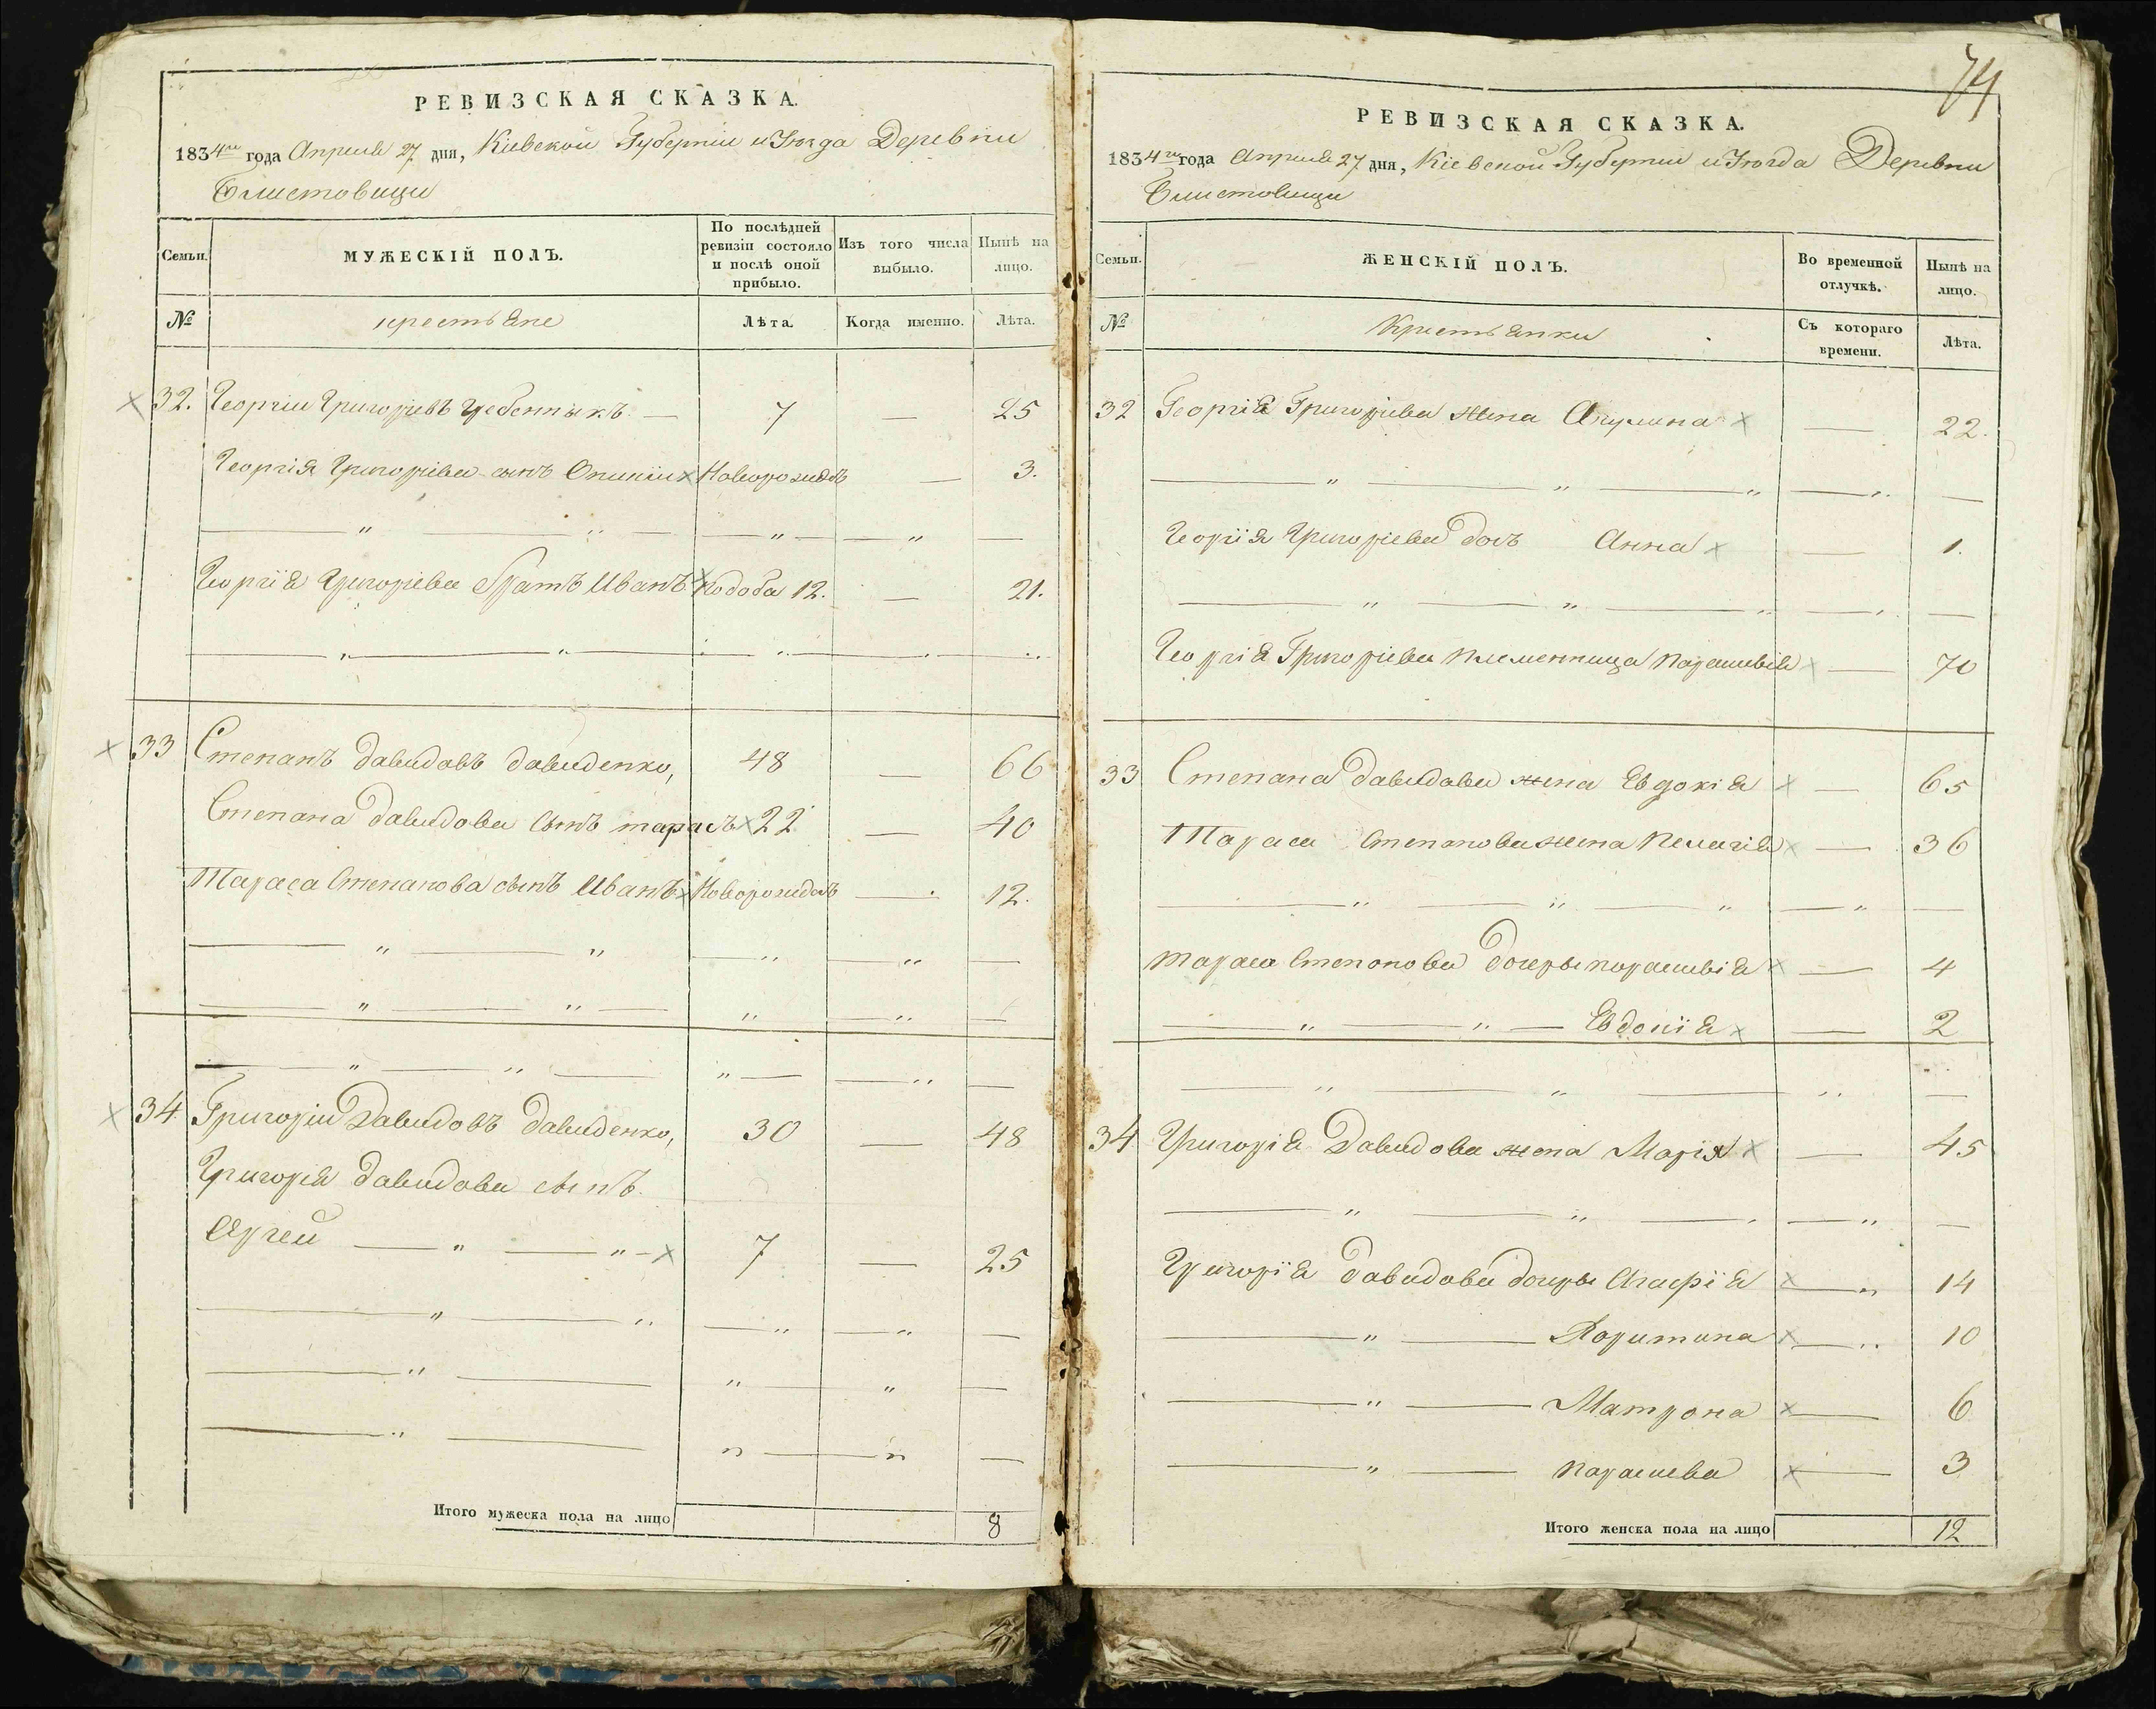 РЕВИЗСКАЯ СКАЗКА.
1834го года Апреля 27 дня, Кіевской Губерніи и Уѣзда Деревни
Блиставици
Семьи.
МУЖЕСКІЙ ПОЛЪ.
По послѣдней ревизіи состояло и послѣ оной прибыло.
Изъ того числа выбыло.
Нынѣ на лицо.
№
крестьяне
Лѣта.
Когда именно.
Лѣта.
32. Георгіи Григоріевъ Гребенныкъ. — 7 — 25
Георгія Григоріева сынъ Новорождъ — 3.
Георгія Григоріева братъ Иванъ 12. — 21.
33 Степанъ Давидовъ Давиденко, 48 — 66
Степана Давидова сынъ Тарасъ 22 — 40
Тараса Степанова сынъ Иванъ Новорождъ — 12.
34 Григоріи Давидовъ Давиденко, 30 — 48
Григорія Давидова сынъ.
Сергей — " — " — 7 — 25
Итого мужеска пола на лицо 8
74
РЕВИЗСКАЯ СКАЗКА.
1834го года Апреля 27 дня, Кіевской Губерніи и Уѣзда Деревни
Блиставици
Семьи.
ЖЕНСКІЙ ПОЛЪ.
Во временной отлучкѣ.
Нынѣ на лицо.
№
Крестьянки
Съ котораго времени.
Лѣта.
32 Георгія Григоріева жена Акулина — 22.
Георгія Григоріева дочь Анна — 1.
Георгія Григоріева племенница Парасквія — 70
33 Степана Давидова жена Евдокія — 65
Тараса Степанова жена Пелагія — 36
Тараса Степанова дочеры Парасквія — 4
— " — " — Евдокія — 2
34 Григорія Давидова жена Марія — 45
Григорія Давидова дочеры Агафія — " 14
— " — Харитина — " 10
— " — Матрона — 6
— " — Параскева — 3
Итого женска пола на лицо 12